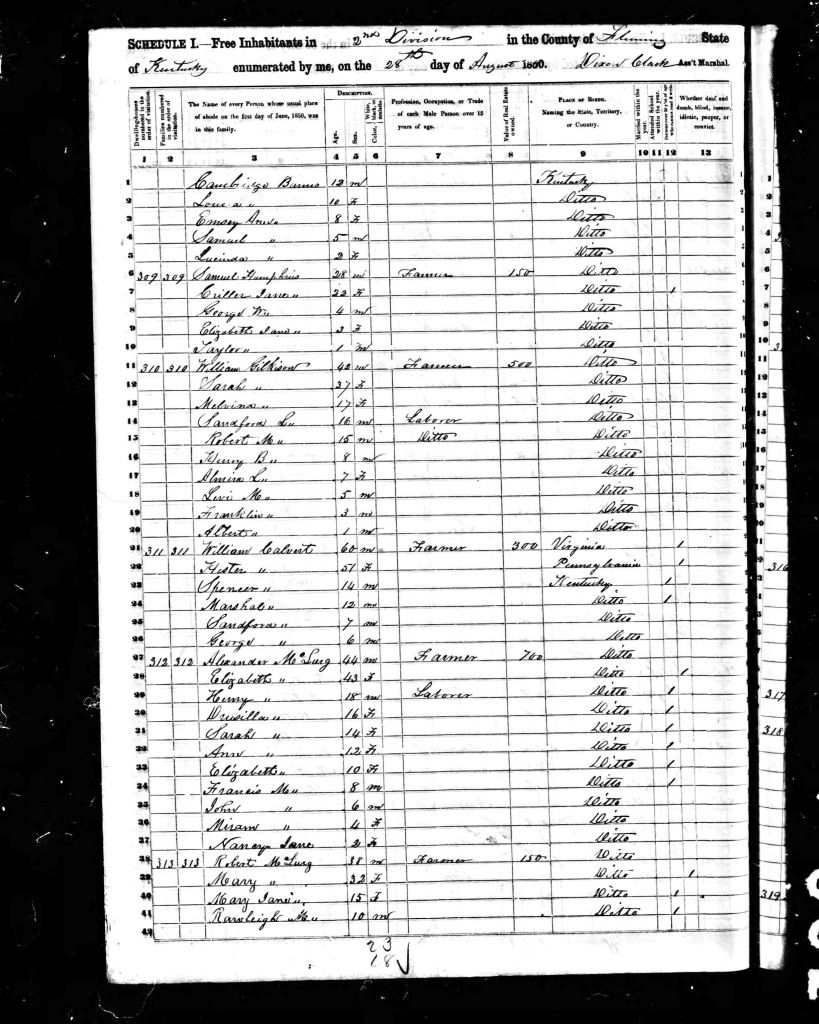 SCHEDULE I.—Free Inhabitants in 2nd Division in the County of Fleming State
of Kentucky enumerated by me, on the 28th day of August 1850. Dixon Clark Ass't Marshal.
Dwelling-houses numbered in the order of visitation.
Families numbered in the order of visitation.
The Name of every Person whose usual place of abode on the first day of June, 1850, was in this family.
DESCRIPTION.
Age.
Sex.
Color, White, black, or mulatto.
Profession, Occupation, or Trade of each Male Person over 15 years of age.
Value of Real Estate owned.
PLACE OF BIRTH.
Naming the State, Territory, or Country.
Married within the year.
Attended School within the year.
Whether deaf and dumb, blind, insane, idiotic, pauper, or convict.
1 2 3 4 5 6 7 8 9 10 11 12 13
1 Cambridge Burns 12 m Kentucky
2 Louisa " 10 F Ditto
3 Emsey Ann " 8 F Ditto
4 Samuel " 5 m Ditto
5 Lucinda " 2 F Ditto
6 309 309 Samuel Humphris 28 m Farmer 150 Ditto
7 Criller Jane " 22 F Ditto 1
8 George W " 4 m Ditto
9 Elizabeth Jane " 3 F Ditto
10 Taylor " 1 m Ditto
11 310 310 William Gilkison 42 m Farmer 500 Ditto
12 Sarah " 37 F Ditto
13 Melvina " 17 F Ditto
14 Sandford L " 16 m Laborer Ditto
15 Robert M " 15 m Ditto Ditto
16 Henry B " 8 m Ditto
17 Almira L " 7 F Ditto
18 Levi M " 5 m Ditto
19 Franklin " 3 m Ditto
20 Albert " 1 m Ditto
21 311 311 William Calvert 60 m Farmer 300 Virginia 1
22 Hester " 51 F Pennsylvania 1
23 Spencer " 14 m Kentucky 1
24 Marshal " 12 m Ditto 1
25 Sandford " 7 m Ditto
26 George " 6 m Ditto
27 312 312 Alexander McLurg 44 m Farmer 700 Ditto
28 Elizabeth " 43 F Ditto 1
29 Henry " 18 m Laborer Ditto 1
30 Drusilla " 16 F Ditto 1
31 Sarah " 14 F Ditto 1
32 Ann " 12 F Ditto 1
33 Elizabeth " 10 F Ditto 1
34 Francis M " 8 m Ditto
35 John " 6 m Ditto
36 Miram " 4 F Ditto
37 Nancy Jane 2 F Ditto
38 313 313 Robert McLurg 38 m Farmer 150 Ditto
39 Mary " 32 F Ditto 1
40 Mary Jane " 15 F Ditto 1
41 Rawleigh M " 10 m Ditto 1
42
23
18
316
317
318
319